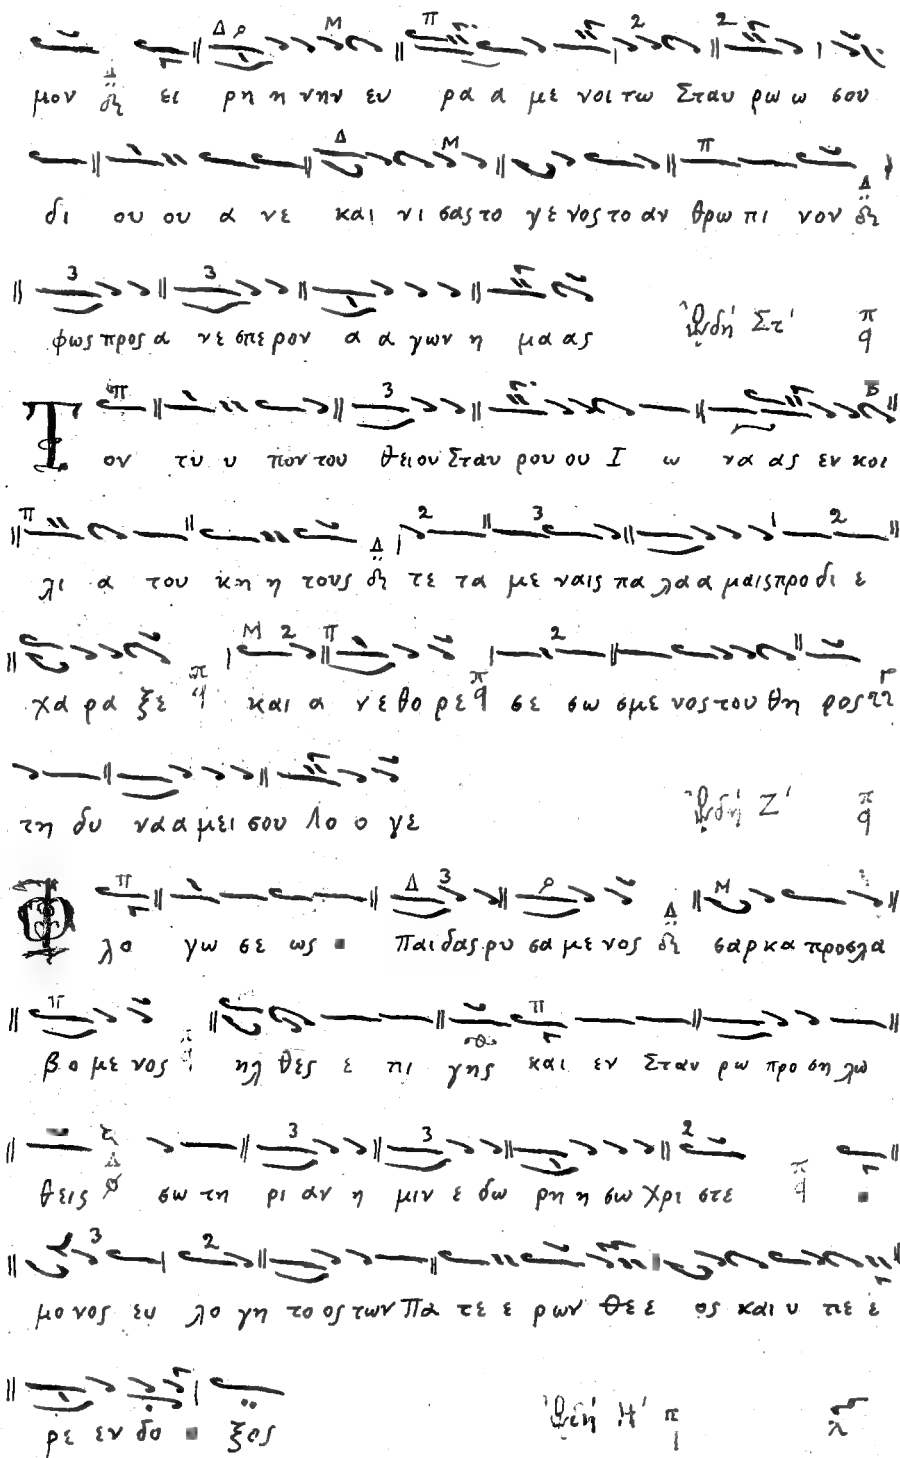 μον ει ρη η νην ευ ρα α με νοι τω Σταυ ρω ω σου
δι ου ου α νε και νι σας το γε νος το αν θρω πι νον
φως προς α νε σπε ρον α α γων η μα ας ᾨδή Στ'
Τ ον τυ υ πον του θειου Σταυ ρου ου Ι ω να ας εν κοι
λι α του κη η τους τε τα με ναις πα λα α μαις προ δι ε
χα ρα ξε και α νε βο ρε σε σω σμε νος του θη ρος
τη δυ να α μει σου Λο ο γε ᾨδή Ζ'
Φ λο γω σε ως παι δας ρυ σα με νος σαρ κα προσ λα
βο με νος ηλ θες ε πι γης και εν Σταυ ρω προ ση λω
θεις σω τη ρι αν η μιν ε δω ρη η σω Χρι στε
μο νος ευ λο γη το ος των Πα τε ε ρων Θε ε ος και υ πε ε
ρε εν δο ξος ᾨδή Η'